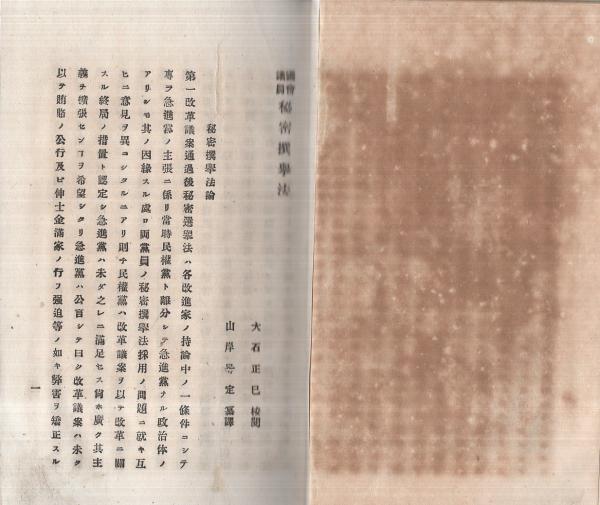 國會議員 秘密撰擧法
大石正巳 校閲
山岸 定 纂譯
秘密撰擧法論
第一改革議案通過後秘密選擧法ハ各改進家ノ持論中ノ一條件ニシテ
專ラ急進黨ノ主張ニ係リ當時民權黨ト離分シテ急進黨ナル政治体ノ
アリシモ其ノ因緣スル處ロ両黨員ノ秘密撰擧法採用ノ問題ニ就キ互
ヒニ意見ヲ異ニシタルニアリ則チ民權黨ハ改革議案ヲ以テ改革ニ關
スル終局ノ措置ト認定シ急進黨ハ未ダ之レニ滿足セス尙ホ廣ク其主
義ヲ擴張センヿヲ希望シタリ急進黨ハ公言シテ曰ク改革議案ハ未タ
以テ賄賂ノ公行及ビ伸士金滿家ノ行フ强迫等ノ如キ弊害ヲ矯正スル
一